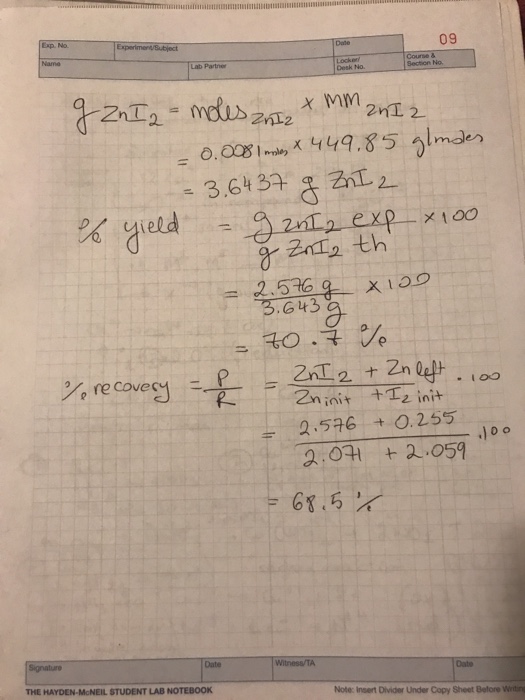 09
Exp. No. Experiment/Subject Date
Name Lab Partner Locker/ Desk No. Course & Section No.
g ZnI2 = moles ZnI2 × mm ZnI2
= 0.0081 moles × 449.85 g/moles
= 3.6437 g ZnI2
% yield = g ZnI2 exp / g ZnI2 th × 100
= 2.576 g / 3.643 g × 100
= 70.7 %
% recovery = P / R = ZnI2 + Zn left / Zn init + I2 init . 100
= 2.576 + 0.255 / 2.071 + 2.059 .100
= 68.5 %
Signature Date Witness/TA Date
THE HAYDEN-McNEIL STUDENT LAB NOTEBOOK Note: Insert Divider Under Copy Sheet Before